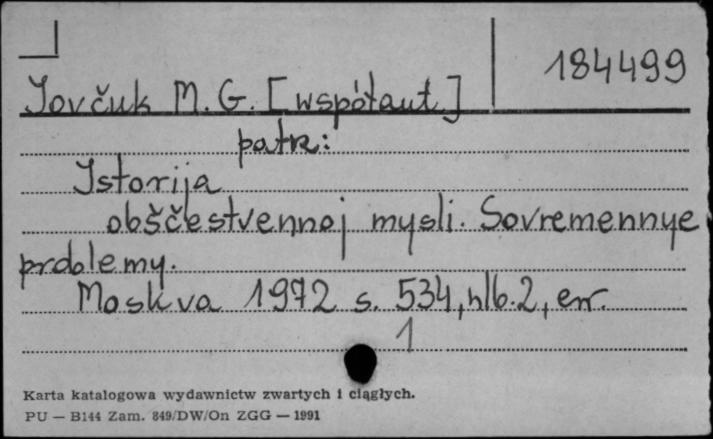 184499
Jovčuk M. G. [współaut.]
patrz:
Istorija
obščestvennoj mysli. Sovremennye
problemy.
Moskva 1972 s. 534, nlb. 2, err.
1
Karta katalogowa wydawnictw zwartych i ciągłych.
PU — B144 Zam. 849/DW/On ZGG — 1991